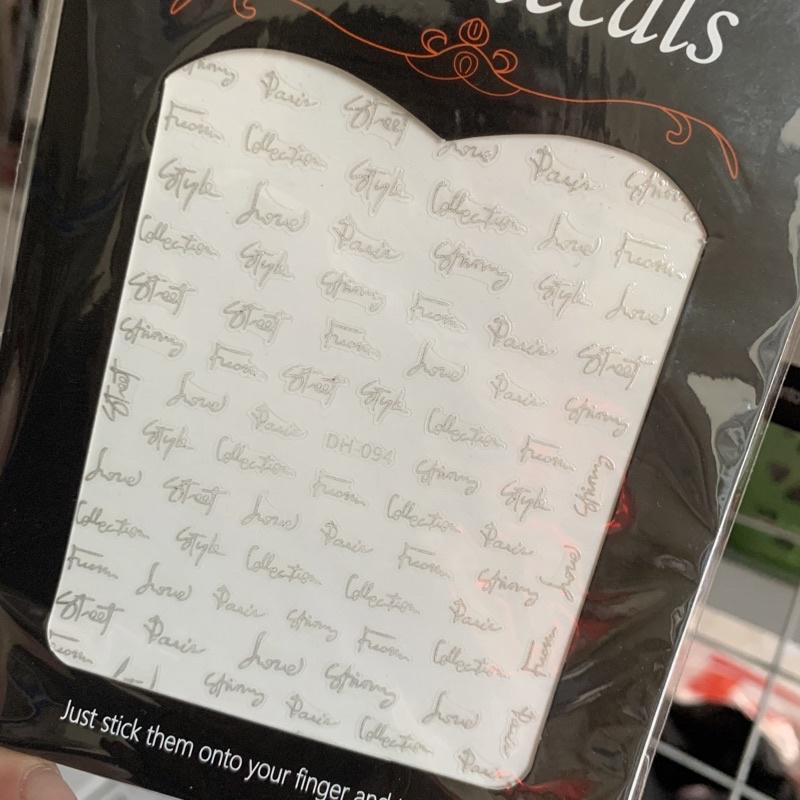 Paris Street Love Paris
From Collection Style Collection Love From
Style Love Paris Style Love
Collection Style From Paris Street
Street Street From Love Paris
From Street Style Collection From
Street Love Paris DH-094 Style
Style Collection From Collection Paris
Love Street Love Paris From Love
Collection Style Collection Collection Paris
From Love Paris From Collection From
Street Paris Love Love Paris
From Paris Collection Paris
Just stick them onto your finger and